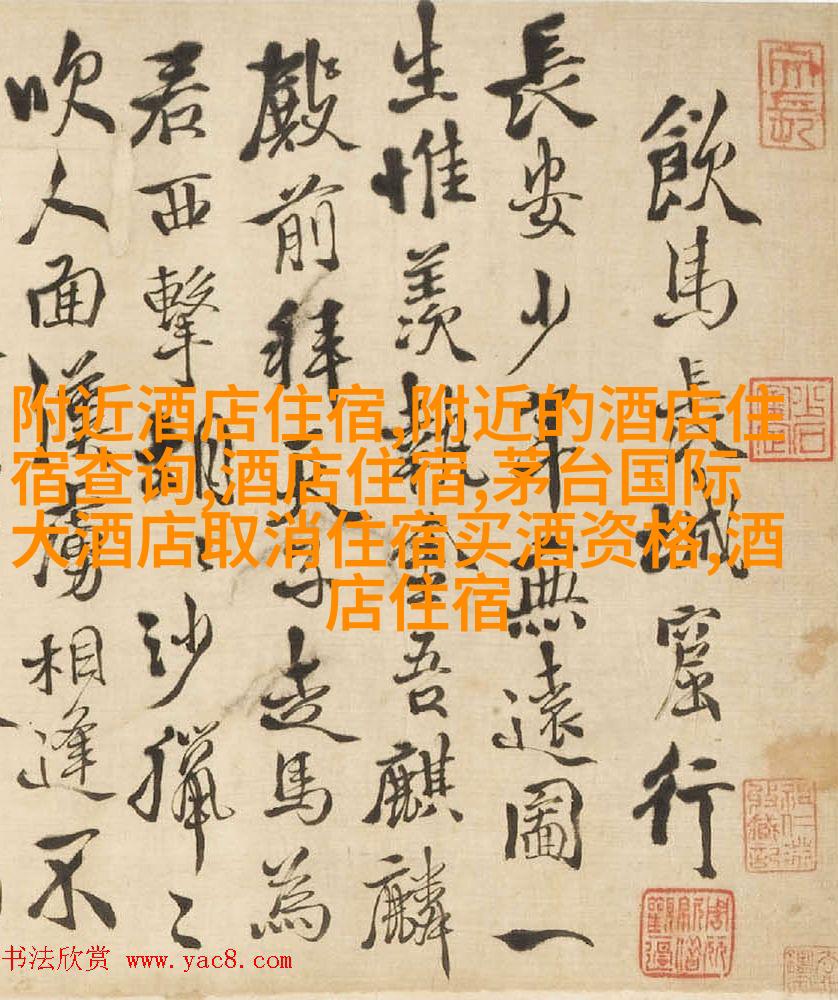 飲馬長城窟行
長安少年無遠圖一
生惟羨執金吾麒麟
殿前拜天子走馬為
君西擊胡〻沙獵〻
吹人面漢虜相逢不
附近酒店住宿,附近的酒店住
宿查询,酒店住宿,茅台国际
大酒店取消住宿买酒资格,酒
店住宿
书法欣赏 www.yac8.com